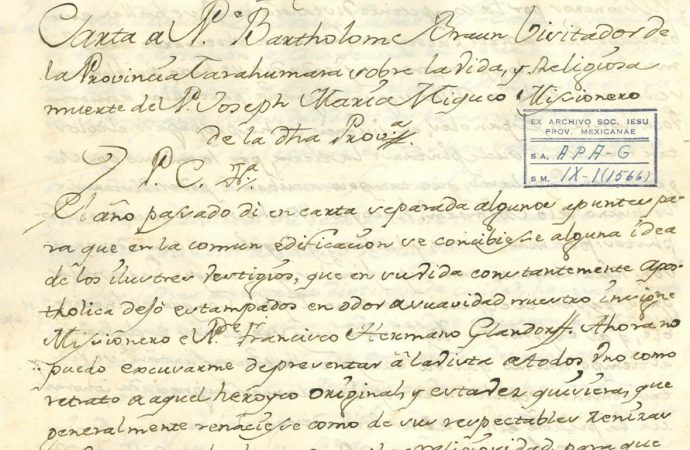 Carta a Pe. Bartholome Braun Visitador de
la Provincia Tarahumara sobre la vida, y Religiosa
muerte del P. Joseph Maria Miqueo Missionero
de la dha Prova.
P. C. &a
EX ARCHIVO SOC. IESU
PROV. MEXICANAE
S A. APA-G
S M. IX-1(1566)
El año passado di en carta separada algunos apuntes pa-
ra que en la comun edificacion se concibiesse alguna idea
de los ilustres vestigios, que en su vida constantemente Apos
tholica dejó estampados en odor a suavidad nuestro insigne
Missionero el Pe. Francisco Hermano Glandorff. Ahora no
puedo excusarme de presentar à la vista a todos uno como
retrato a aquel heroyco original, y esta vez quisiera, que
generalmente renaciesse como de sus respectables zenizas
religiosidad, para que